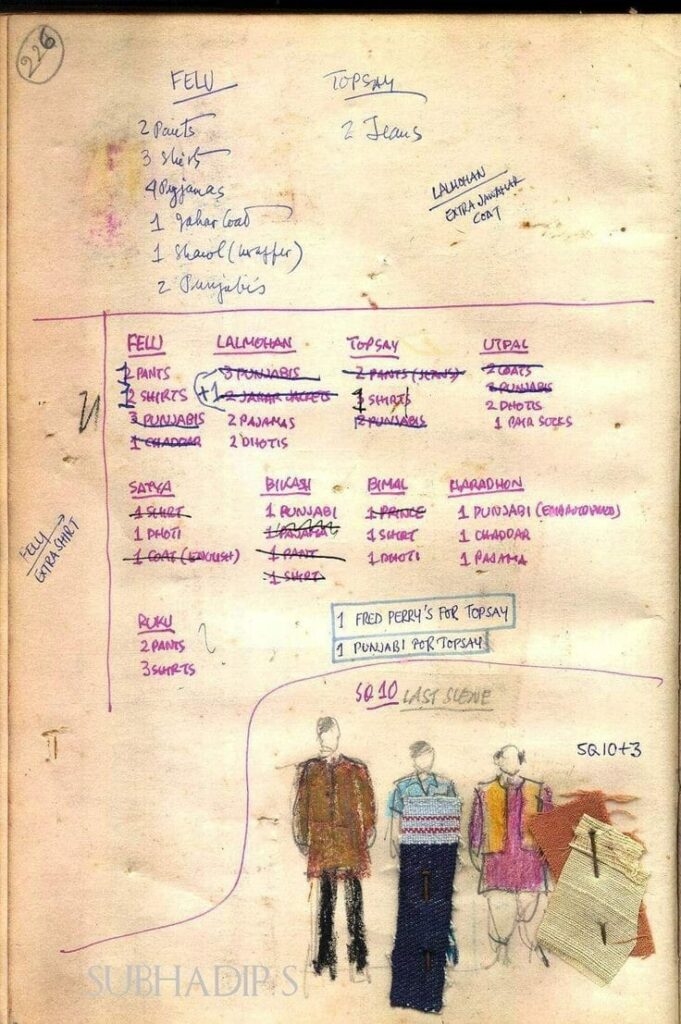 226
FELU
TOPSAY
2 Pants
2 Jeans
3 Shirts
4 Pyjamas
1 Jahar Coat
1 Shawl (wrapper)
2 Punjabis
LALMOHAN
EXTRA JAWAHAR
COAT
FELU
2 PANTS
2 SHIRTS
3 PUNJABIS
1 CHADDAR
LALMOHAN
3 PUNJABIS
+1 2 JAHAR JACKETS
2 PAJAMAS
2 DHOTIS
TOPSAY
2 PANTS (JEANS)
SHIRTS
2 PUNJABIS
UTPAL
2 COATS
3 PUNJABIS
2 DHOTIS
1 PAIR SOCKS
FELU
EXTRA SHIRT
SATYA
1 SHIRT
1 DHOTI
1 COAT (ENGLISH)
BIKASH
1 PUNJABI
1 PAJAMA
1 PANT
1 SHIRT
BIMAL
1 PRINCE
1 SHIRT
1 DHOTI
HARADHON
1 PUNJABI (EMBROIDERED)
1 CHADDAR
1 PAJAMA
RUKU
2 PANTS
3 SHIRTS
1 FRED PERRY'S FOR TOPSAY
1 PUNJABI FOR TOPSAY
SQ 10 LAST SCENE
SQ 10+3
SUBHADIP.S